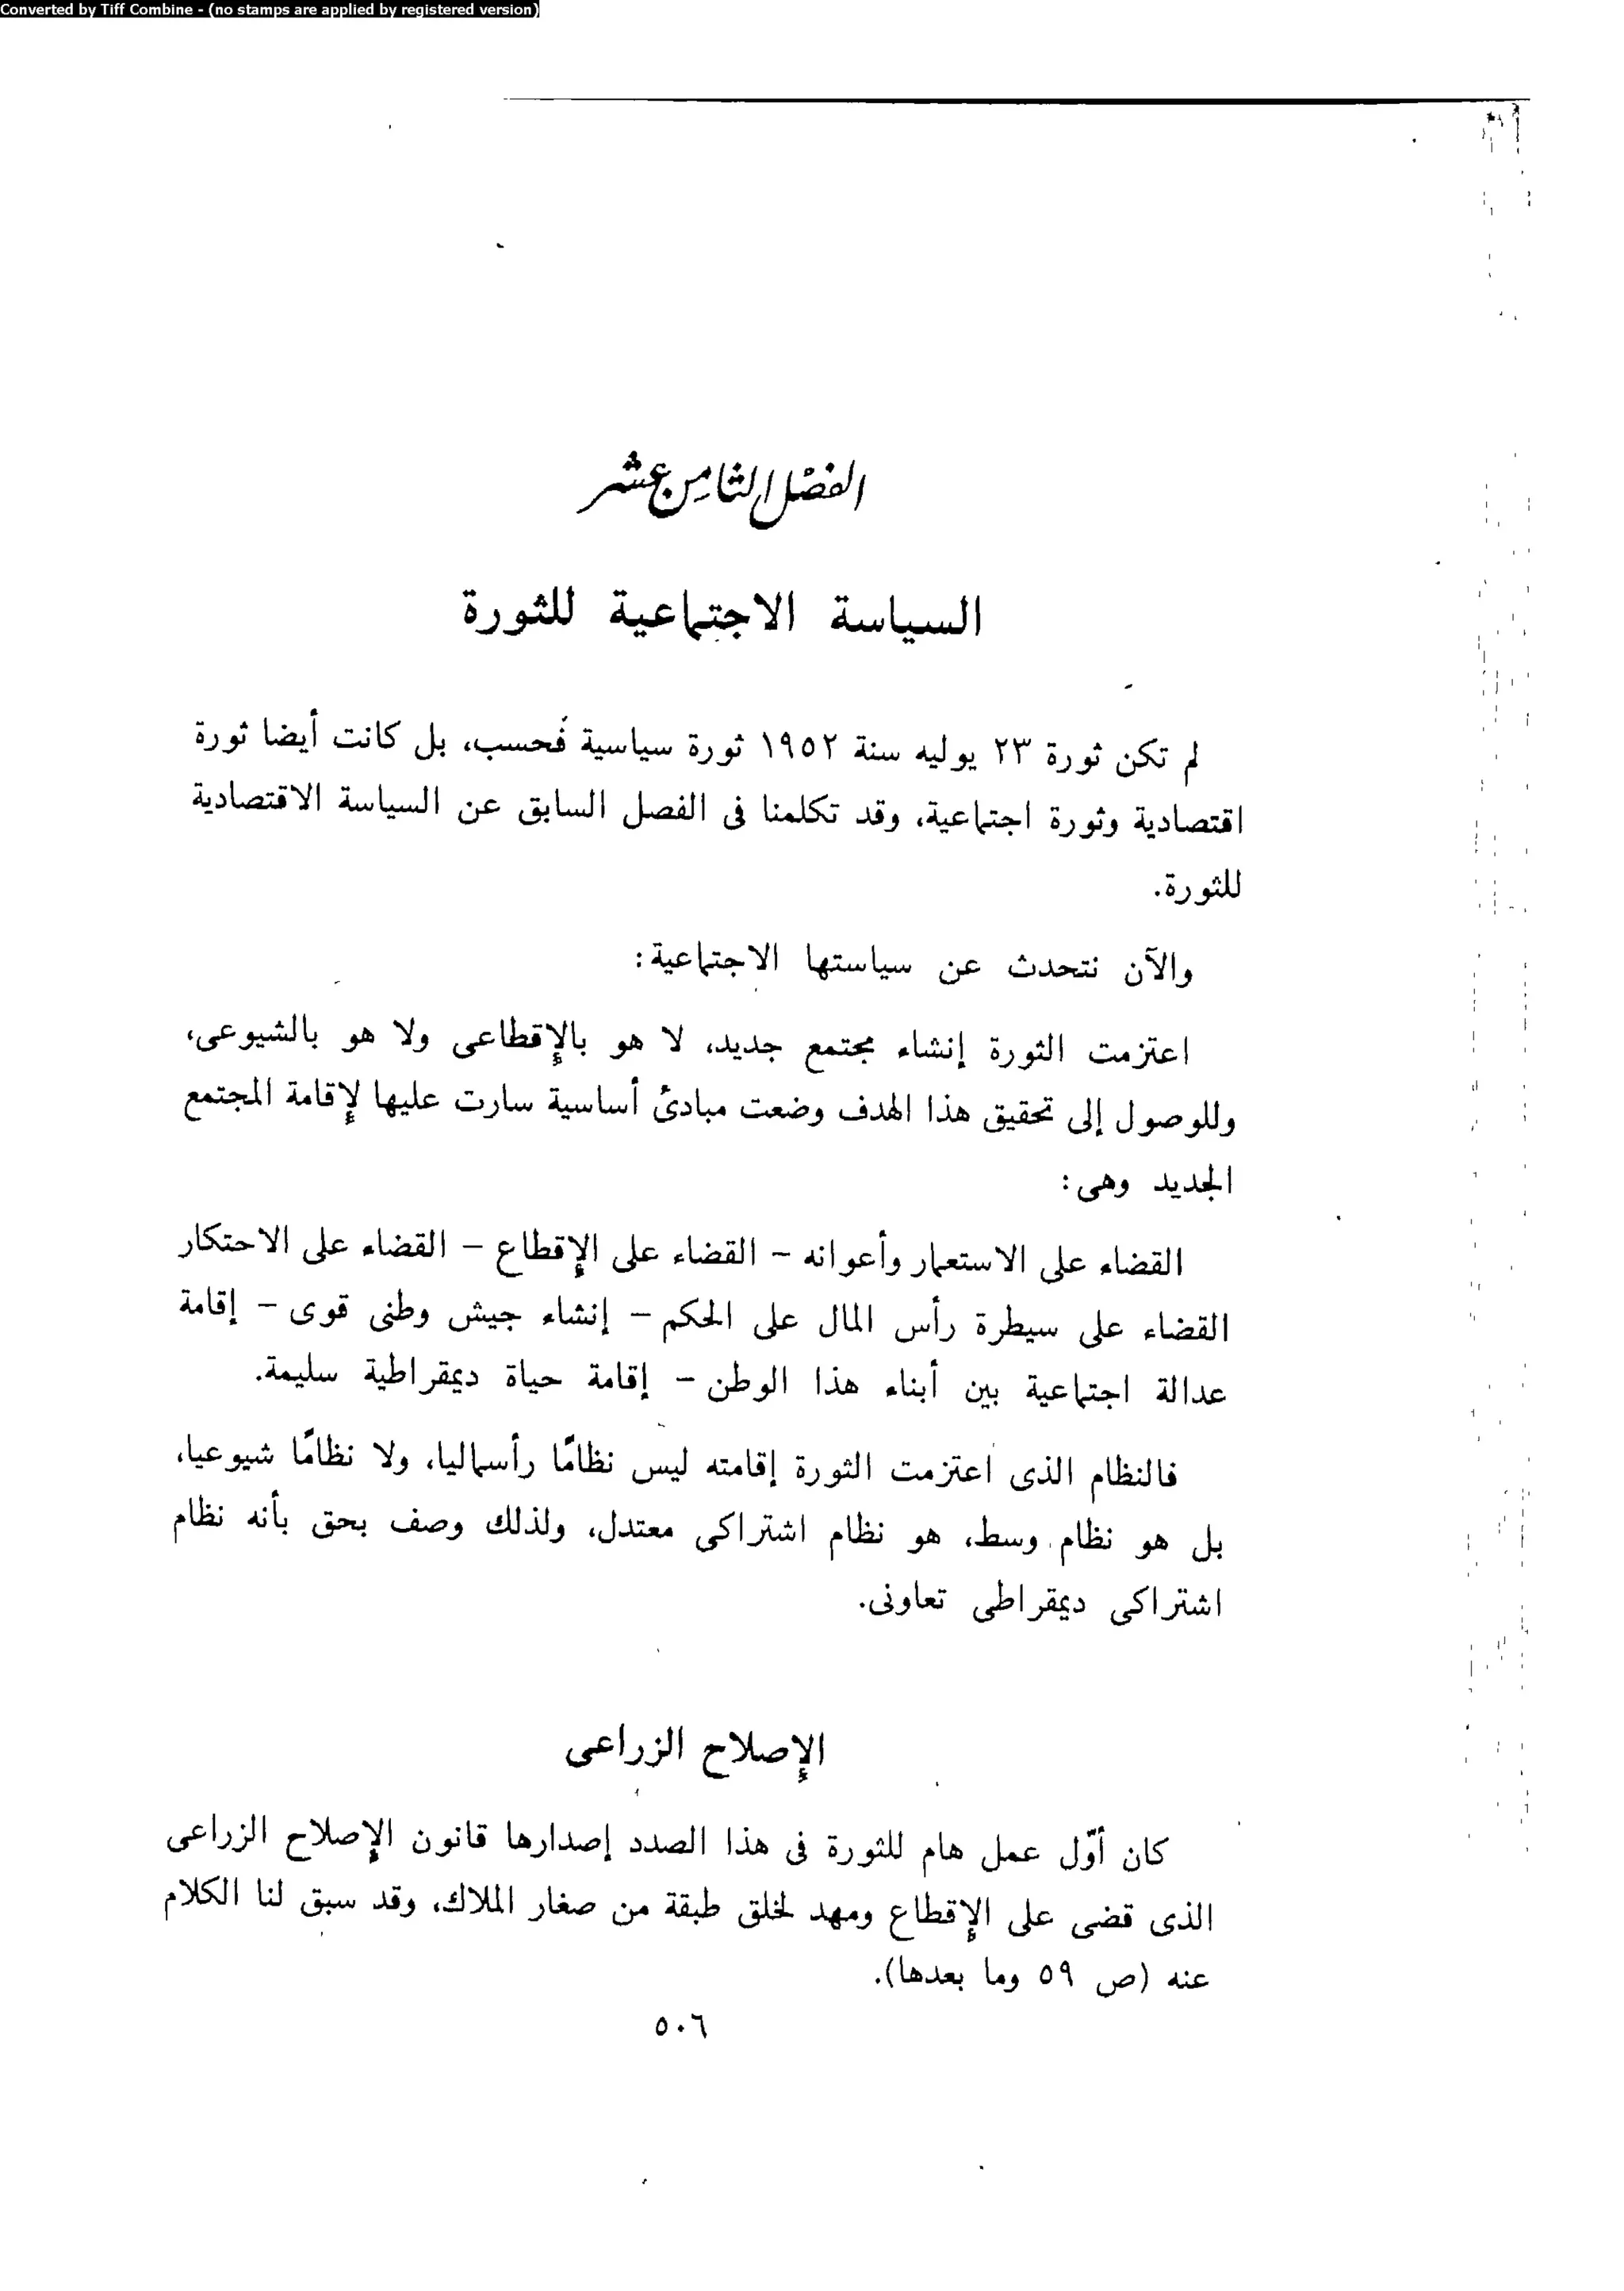 Converted by Tiff Combine - (no stamps are applied by registered version)
الفصل الثامن عشر
السياسة الاجتماعية للثورة
لم تكن ثورة ٢٣ يوليه سنة ١٩٥٢ ثورة سياسية فَحسب، بل كانت أيضا ثورة
اقتصادية وثورة اجتماعية، وقد تكلمنا فى الفصل السابق عن السياسة الاقتصادية
للثورة.
والآن نتحدث عن سياستها الاجتماعية:
اعتزمت الثورة إنشاء مجتمع جديد، لا هو بالإقطاعى ولا هو بالشيوعى،
وللوصول إلى تحقيق هذا الهدف وضعت مبادئ أساسية سارت عليها لإقامة المجتمع
الجديد وهى:
القضاء على الاستعمار وأعوانه – القضاء على الإقطاع – القضاء على الاحتكار
القضاء على سيطرة رأس المال على الحكم – إنشاء جيش وطنى قوى – إقامة
عدالة اجتماعية بين أبناء هذا الوطن – إقامة حياة ديمقراطية سليمة.
فالنظام الذى اعتزمت الثورة إقامته ليس نظامًا رأسماليا، ولا نظامًا شيوعيا،
بل هو نظام وسط، هو نظام اشتراكى معتدل، ولذلك وصف بحق بأنه نظام
اشتراكى ديمقراطى تعاونى.
الإصلاح الزراعى
كان أوّل عمل هام للثورة فى هذا الصدد إصدارها قانون الإصلاح الزراعى
الذى قضى على الإقطاع ومهد لخلق طبقة من صغار الملاك، وقد سبق لنا الكلام
عنه (ص ٥٩ وما بعدها).
٥٠٦